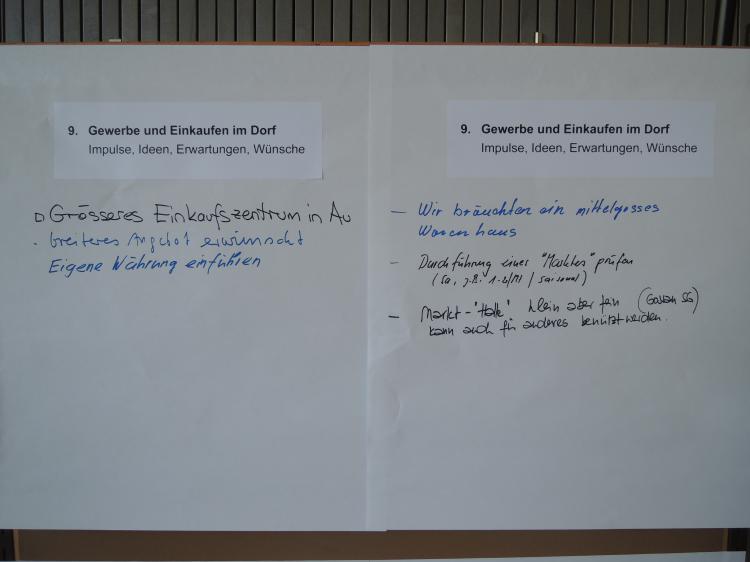 9. Gewerbe und Einkaufen im Dorf
Impulse, Ideen, Erwartungen, Wünsche
Grösseres Einkaufszentrum in Au
breiteres Angebot erwünscht
Eigene Währung einführen
9. Gewerbe und Einkaufen im Dorf
Impulse, Ideen, Erwartungen, Wünsche
– Wir bräuchten ein mittelgrosses
Warenhaus
– Durchführung eines "Marktes" prüfen
(Sa, z.B. / saisonal)
– Markt-"Halle" klein aber fein
kann auch für anderes benützt werden.